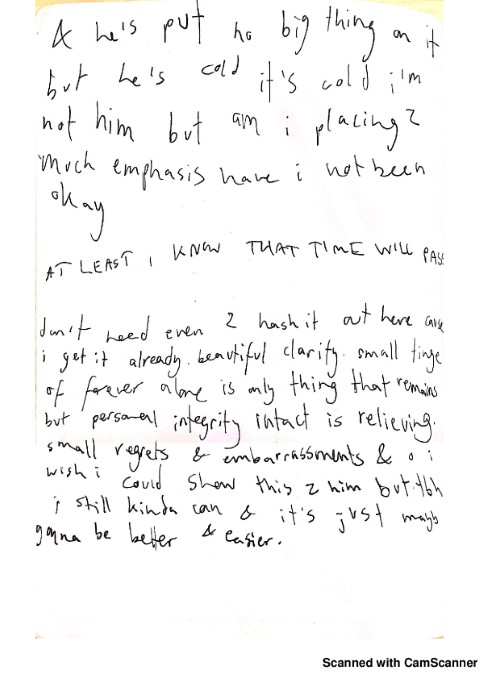 & he's put no big thing on it
but he's cold it's cold i'm
not him but am i placing 2
much emphasis have i not been
okay
AT LEAST I KNOW THAT TIME WILL PASS
don't need even 2 hash it out here cause
i get it already. beautiful clarity. small tinge
of forever alone is only thing that remains
but personal integrity intact is relieving.
small regrets & embarrassments & o i
wish i could show this 2 him but tbh
i still kinda can & it's just mayb
gonna be better & easier.
Scanned with CamScanner